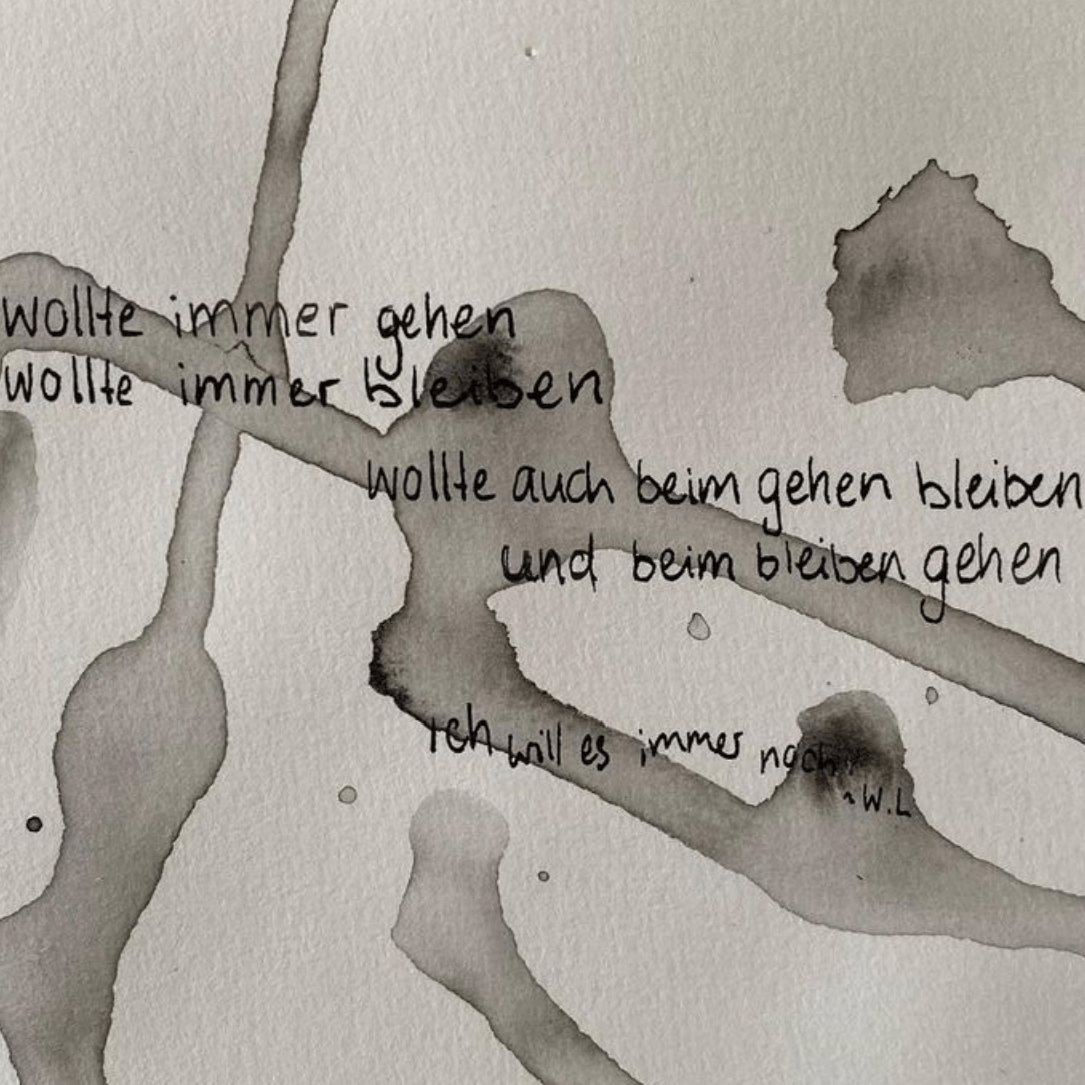 wollte immer gehen
wollte immer bleiben
wollte auch beim gehen bleiben
und beim bleiben gehen
ich will es immer noch
~W.L